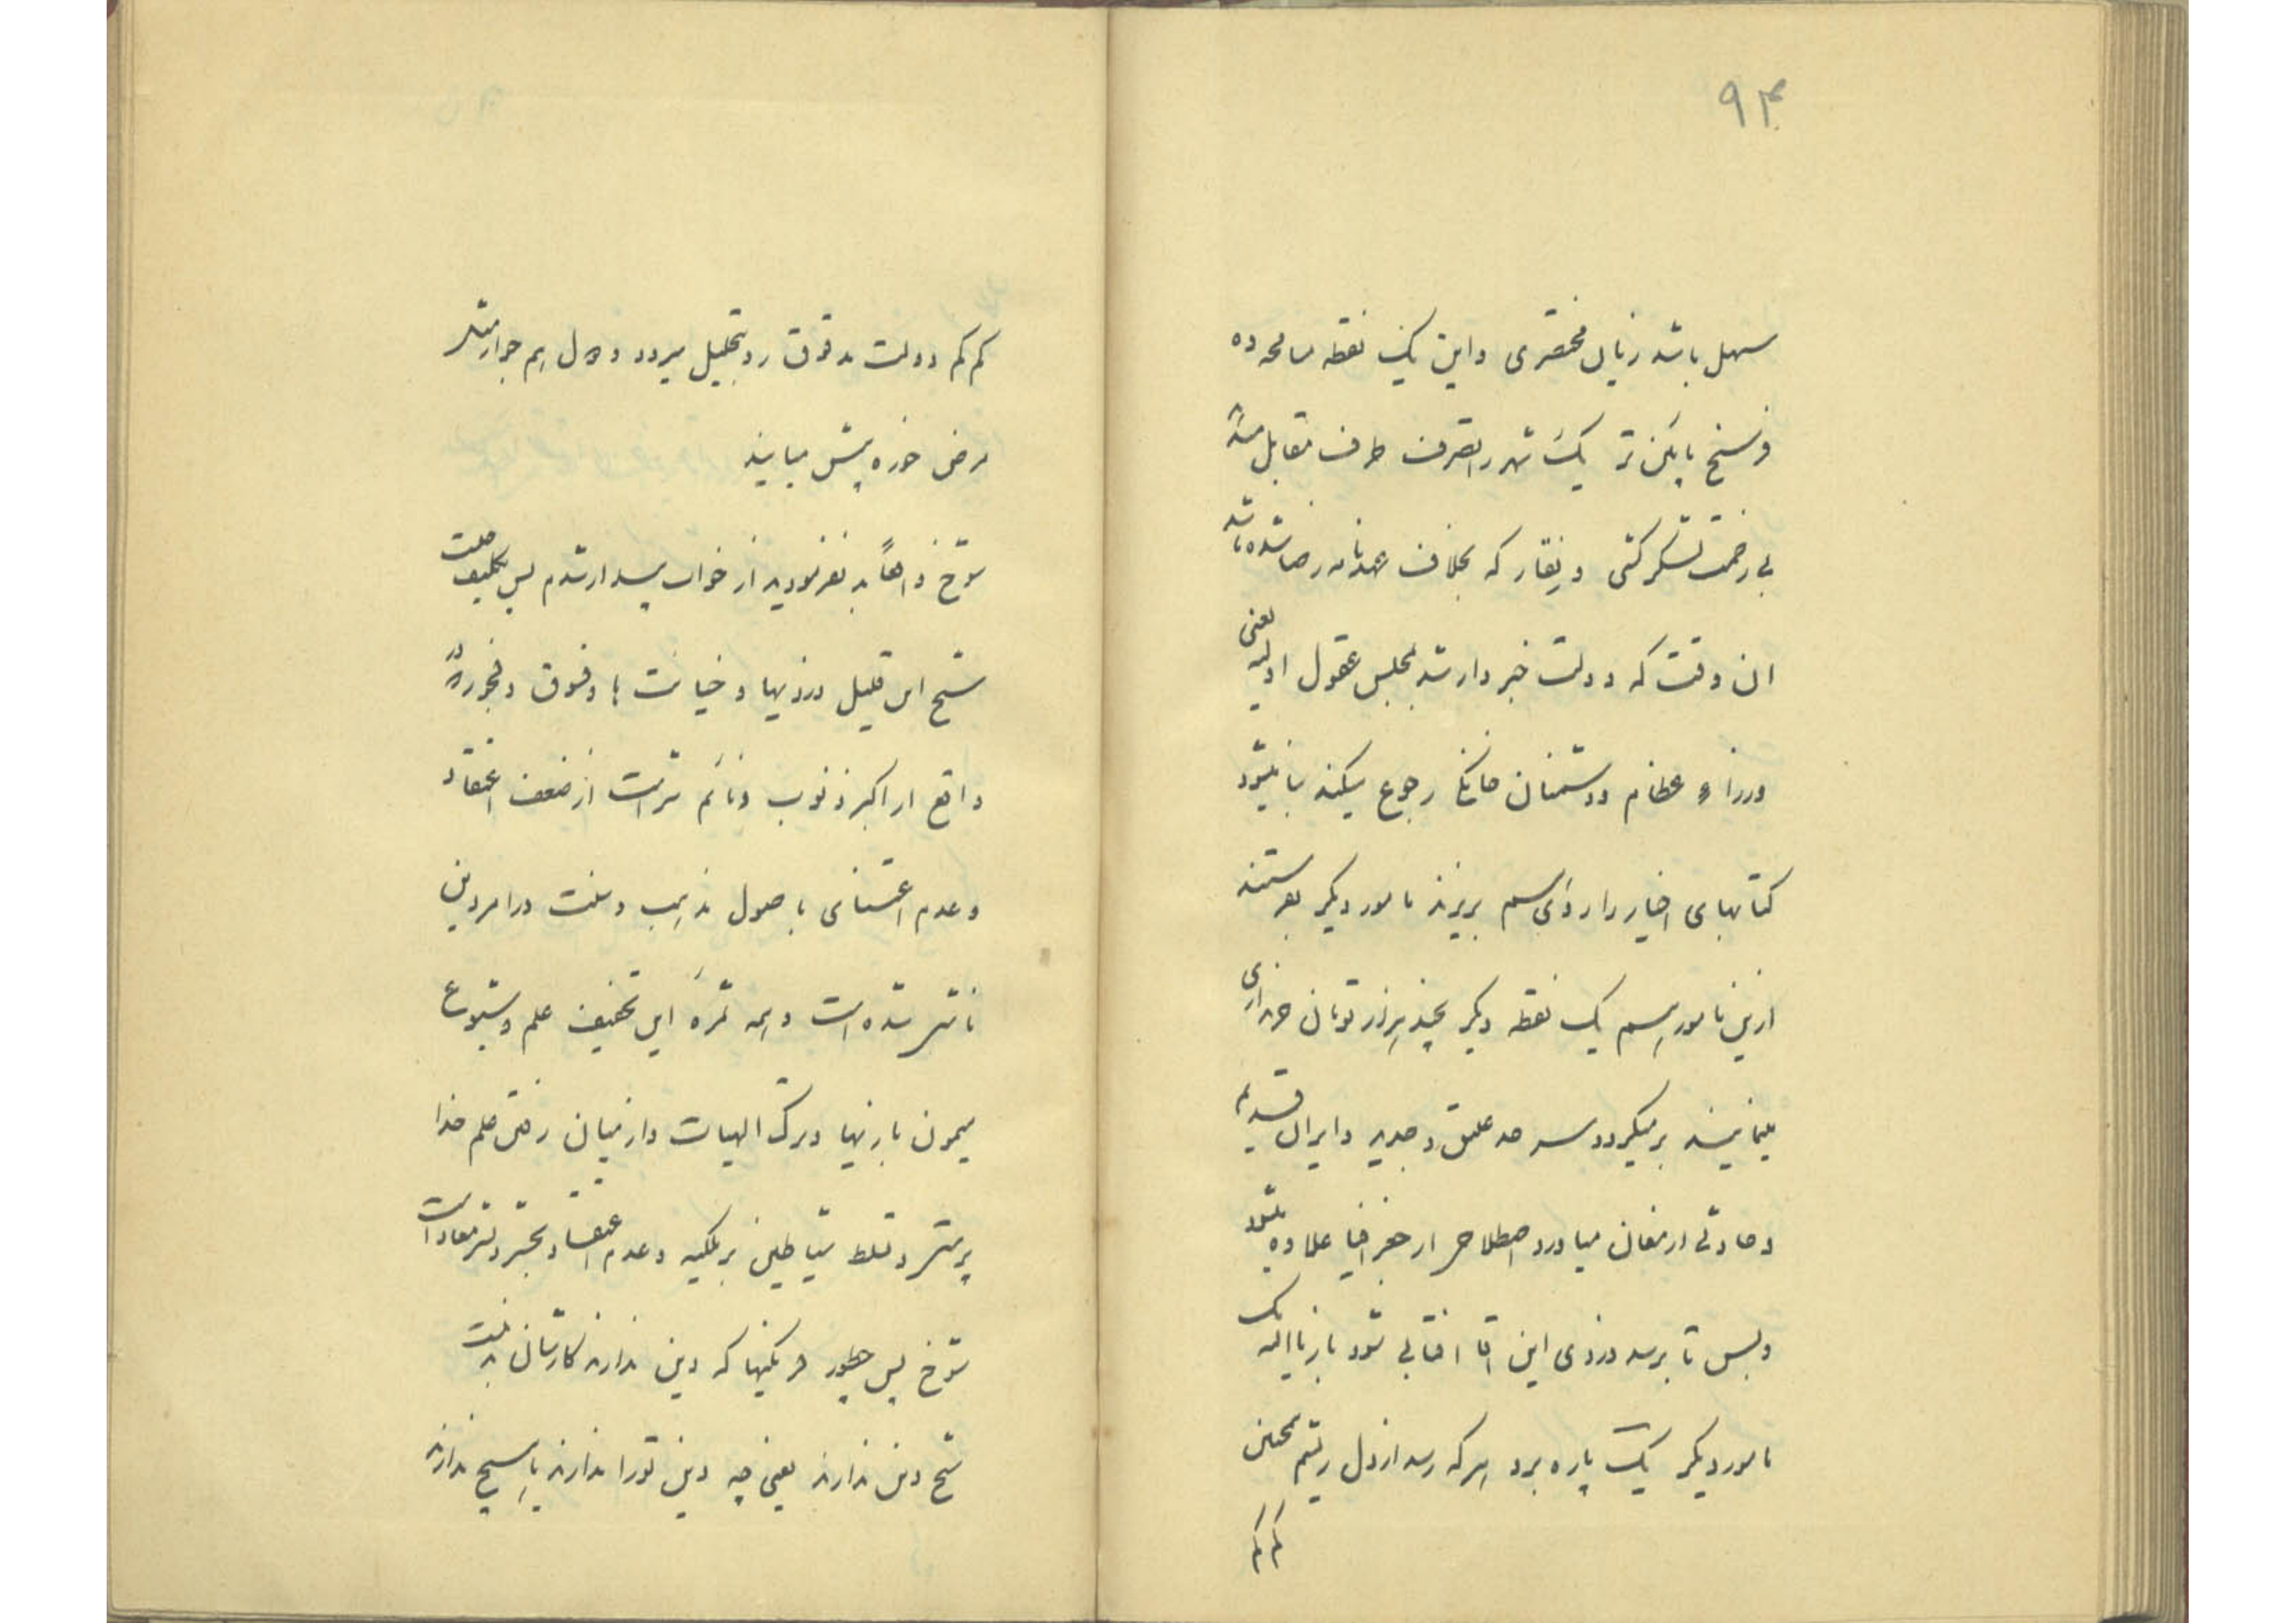 ۹۴
سهل باشد زیان مختصری و این یک نقطه مسامحه ده
فرسنخ پایین تر یک شهر را بتصرف طرف مقابل میدهد
بی زحمت لشکر کشی و نقار که بخلاف عهدنامه رضا شده باشد
ان وقت که دولت خبردار شد بمجلس عقول اولیه یعنی
وزراء عظام و دشمنان خانگی رجوع میکنند بنا میشود
کتابهای اخبار را روی هم بریزند مامور دیگر بفرستند
ازین مامور هم یک نقطه دیگر بچند هزار تومان خریداری
مینمایند بر میگردد سر حد عتیق و جدید و ایران قدیم
و حادثی ارمغان میاورد اصطلاح از جغرافیا علاوه میشود
و بس تا برسد دزدی این اقا افتابی شود باز باالیه یک
مامور دیگر یک پاره برد هر که رسد از دل ریشم همچنین
کم کم
کم کم دولت مدقوق رو بتحلیل میرود و دول هم جوار مثل
مرض خوره پیش میایند
شوخ واهاً به نفرمودید از خواب بیدار شدم پس تکلیف ملت
شیخ این قبیل دزدیها و خیانت ها و فسوق و فجور که در
واقع از اکبر ذنوب و ذمائم شر است از ضعف اعتقاد
و عدم اعتنای باصول مذهب و ملت در امر دین
ناشی شده است و همه ثمرهٔ این تخفیف علم و شیوع
میمون بازیها و ترک الهیات و از میان رفتن علم خدا
پرستی و تسلط شیاطین بر ملکیه و عدم اعتقاد بحشر و نشر معاد است
شوخ پس چطور فرنگیها که دین ندارند کارشان بد نیست
شیخ دین ندارند یعنی چه دین تو را ندارند یا هیچ ندارند